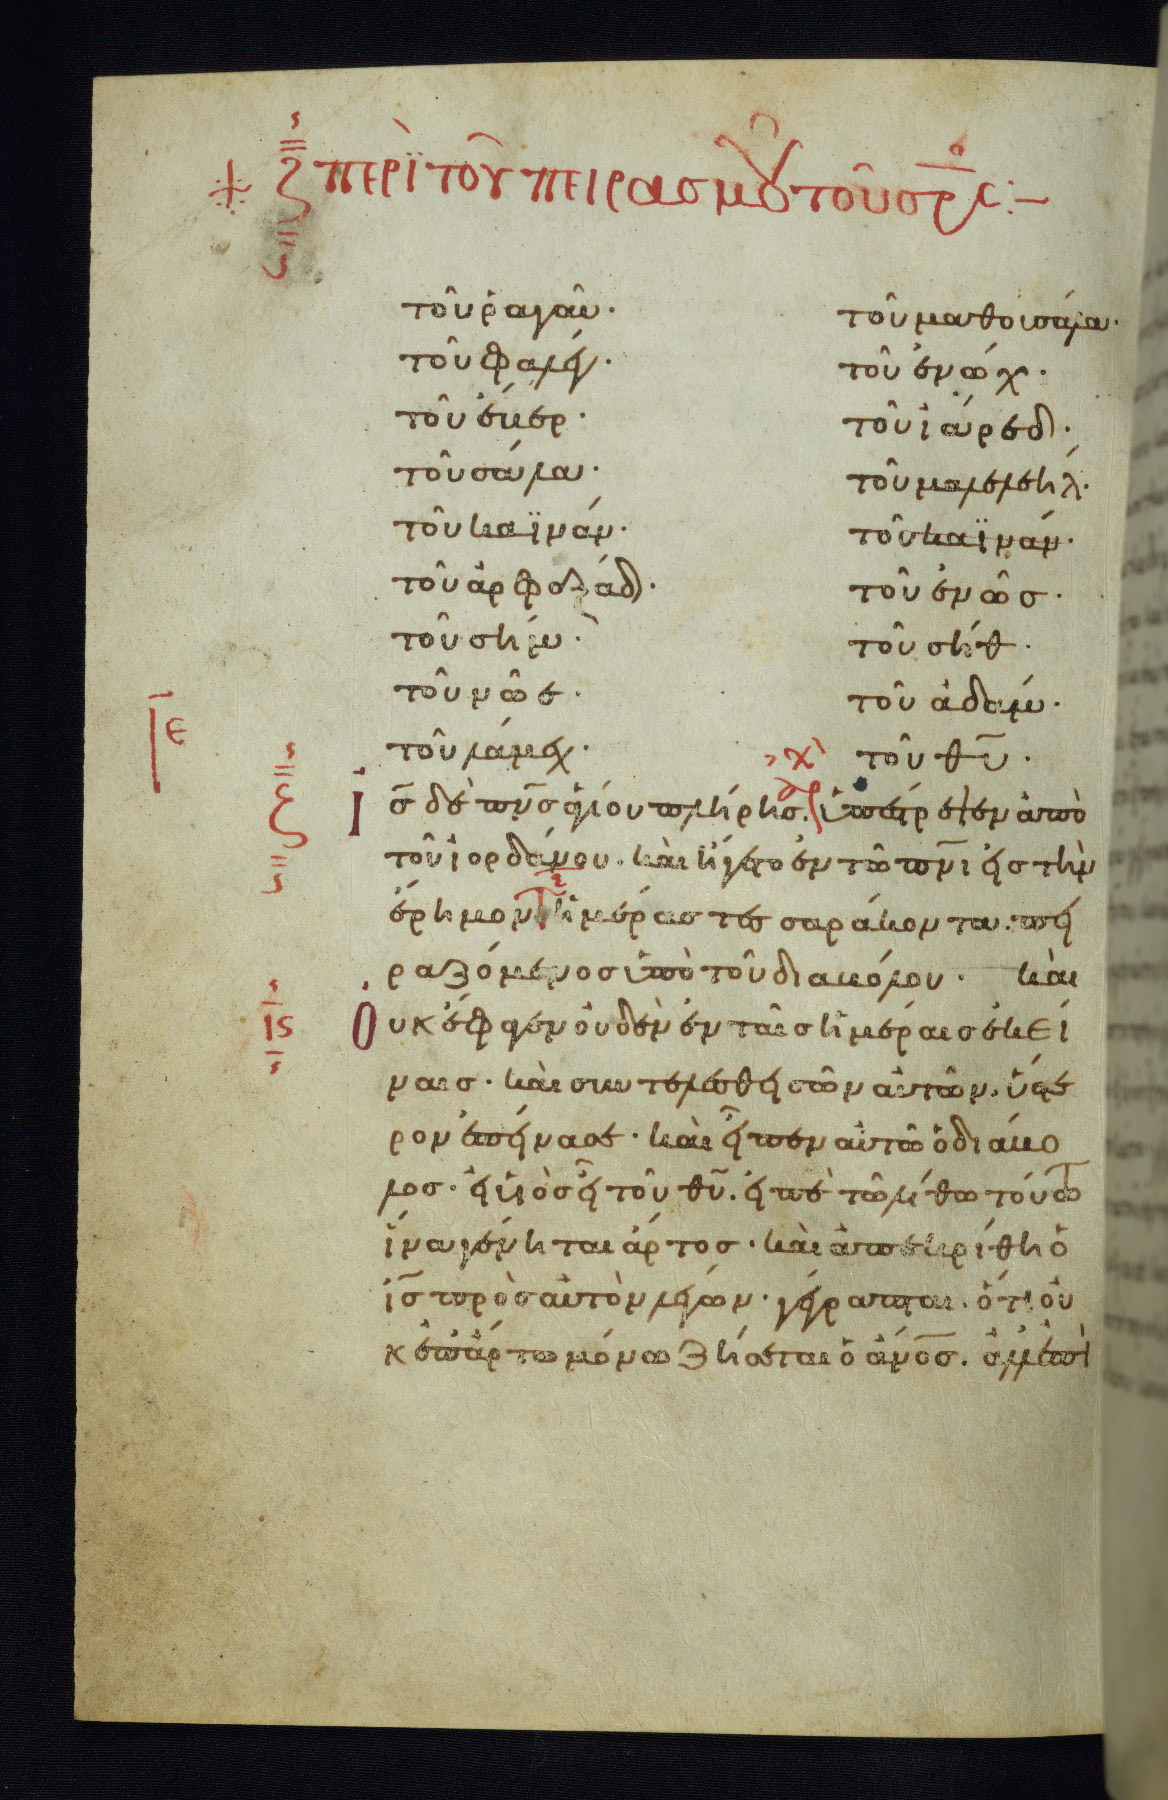 ζ περὶ τοῦ πειρασμοῦ τοῦ σρς:-
τοῦ ῥαγαῦ·
τοῦ φαλέγ·
τοῦ ἔβερ·
τοῦ σάλα·
τοῦ καϊνάν·
τοῦ ἀρφαξάδ·
τοῦ σήμ·
τοῦ νῶε·
τοῦ λάμεχ·
τοῦ μαθουσάλα·
τοῦ ἐνώχ·
τοῦ ἰάρεδ·
τοῦ μαλελεήλ·
τοῦ καϊνάν·
τοῦ ἐνῶς·
τοῦ σήθ·
τοῦ ἀδάμ·
τοῦ θῦ·
ιε
ζ
ις δὲ πνς ἁγίου πλήρης. ὑπέστρεψεν ἀπὸ
τοῦ ἰορδάνου· καὶ ἤγετο ἐν τῶ πνι εἰς τὴν
ἔρημον ἡμέρας τεσσαράκοντα. πει
ραζόμενος ὑπὸ τοῦ διαβόλου· καὶ
ις
ουκ ἔφαγεν οὐδὲν ἐν ταῖς ἡμέραις ἐκεί
ναις· καὶ συντελεσθεισῶν αὐτῶν. ὕστε
ρον ἐπείνασε· καὶ εἶπεν αὐτῶ ὁ διάβο
λος· εἰ υἱὸς εἶ τοῦ θῦ. εἰπὲ τῶ λίθω τούτω
ἵνα γένηται ἄρτος· καὶ ἀπεκρίθη ὁ
ις πρὸς αὐτὸν λέγων· γέγραπται. ὅτι οὐ
κ ἐπ ἄρτω μόνω ζήσεται ὁ ἄνος. ἀλλ ἐπὶ